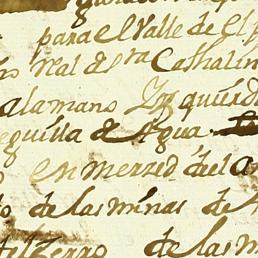 para el Valle de el
Real de Sta Cathalin
a la mano Izquierd
eguilla de Agua
en merzed del a
de las minas de
el Zerro de las m